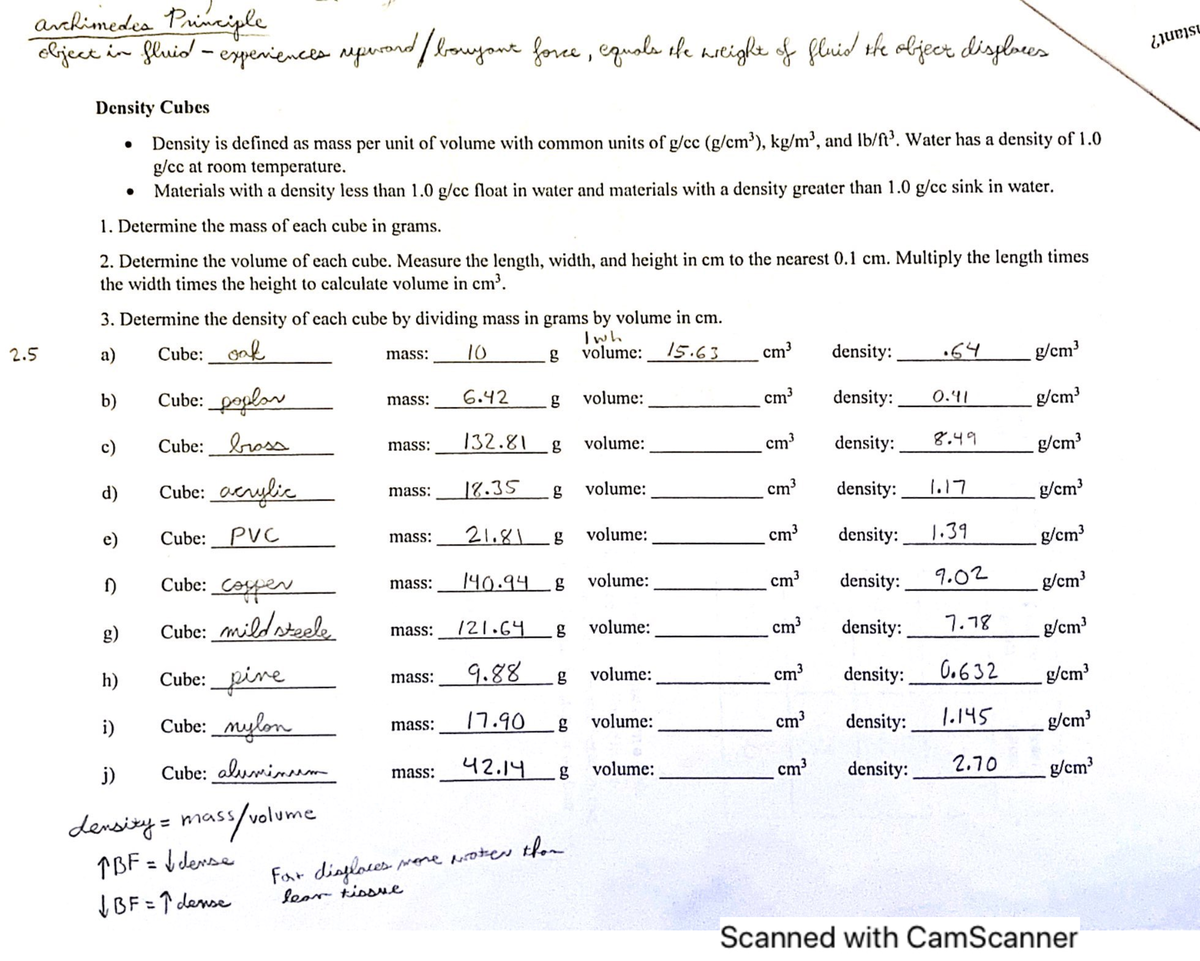 archimedes Principle
object in fluid - experiences upward/bouyant force, equals the weight of fluid the object displaces
Density Cubes
• Density is defined as mass per unit of volume with common units of g/cc (g/cm³), kg/m³, and lb/ft³. Water has a density of 1.0
g/cc at room temperature.
• Materials with a density less than 1.0 g/cc float in water and materials with a density greater than 1.0 g/cc sink in water.
1. Determine the mass of each cube in grams.
2. Determine the volume of each cube. Measure the length, width, and height in cm to the nearest 0.1 cm. Multiply the length times
the width times the height to calculate volume in cm³.
3. Determine the density of each cube by dividing mass in grams by volume in cm.
lwh
2.5 a) Cube: oak mass: 10 g volume: 15.63 cm³ density: .64 g/cm³
b) Cube: poplar mass: 6.42 g volume: cm³ density: 0.41 g/cm³
c) Cube: brass mass: 132.81 g volume: cm³ density: 8.49 g/cm³
d) Cube: acrylic mass: 18.35 g volume: cm³ density: 1.17 g/cm³
e) Cube: PVC mass: 21.81 g volume: cm³ density: 1.39 g/cm³
f) Cube: copper mass: 140.94 g volume: cm³ density: 9.02 g/cm³
g) Cube: mild steele mass: 121.64 g volume: cm³ density: 7.78 g/cm³
h) Cube: pine mass: 9.88 g volume: cm³ density: 0.632 g/cm³
i) Cube: nylon mass: 17.90 g volume: cm³ density: 1.145 g/cm³
j) Cube: aluminum mass: 42.14 g volume: cm³ density: 2.70 g/cm³
density = mass/volume
↑BF = ↓dense
Fat displaces more water than
↓BF = ↑dense
lean tissue
Scanned with CamScanner